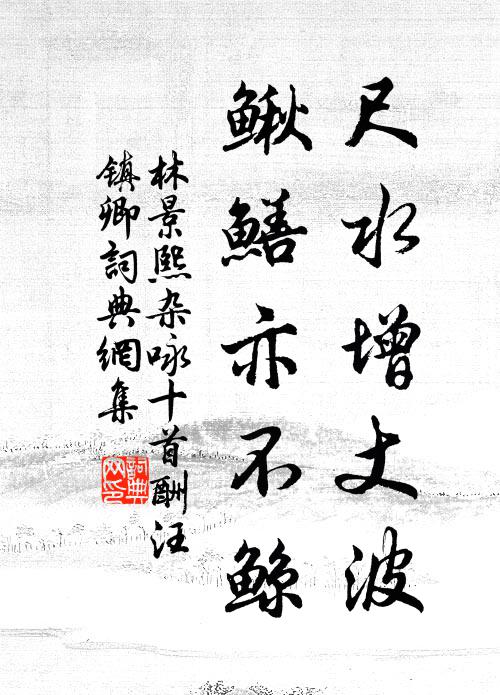 尺水增丈波
鳅鳝亦不鲸
林景熙杂咏十首酬汪
镇卿词典網集
詞典網印